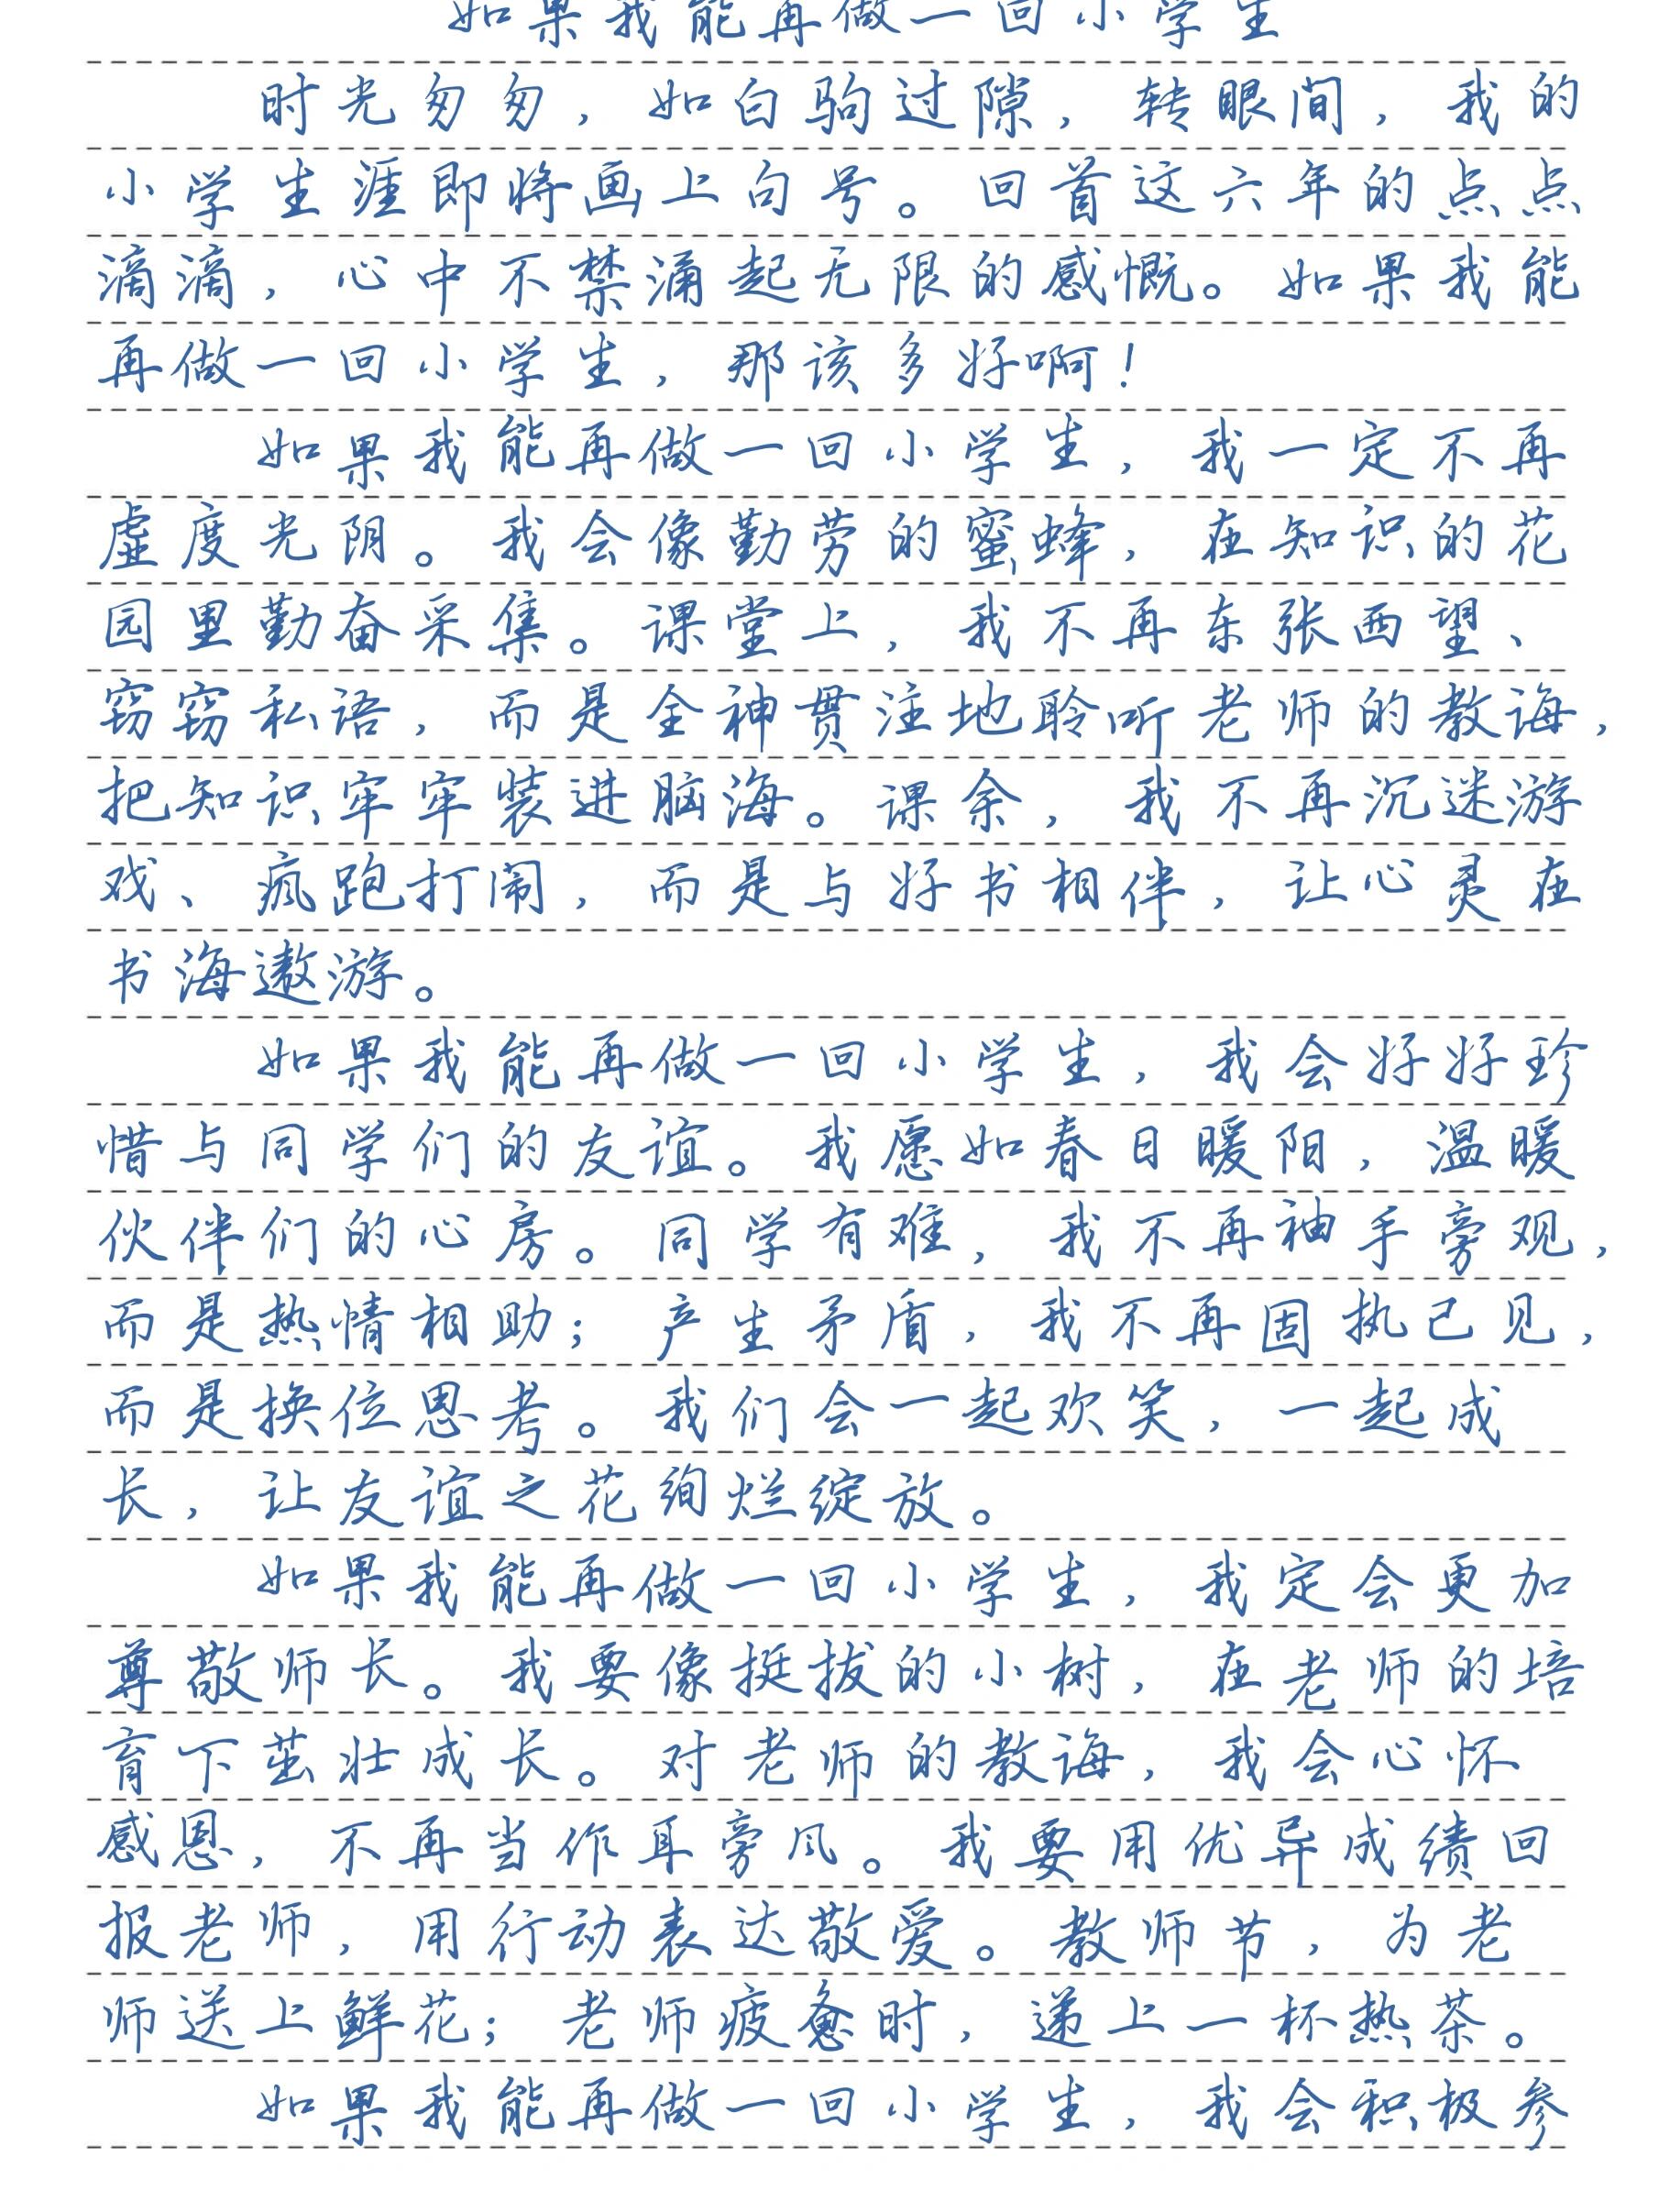 如果我能再做一回小学生
时光匆匆，如白驹过隙，转眼间，我的
小学生涯即将画上句号。回首这六年的点点
滴滴，心中不禁涌起无限的感慨。如果我能
再做一回小学生，那该多好啊！
如果我能再做一回小学生，我一定不再
虚度光阴。我会像勤劳的蜜蜂，在知识的花
园里勤奋采集。课堂上，我不再东张西望、
窃窃私语，而是全神贯注地聆听老师的教诲，
把知识牢牢装进脑海。课余，我不再沉迷游
戏、疯跑打闹，而是与好书相伴，让心灵在
书海遨游。
如果我能再做一回小学生，我会好好珍
惜与同学们的友谊。我愿如春日暖阳，温暖
伙伴们的心房。同学有难，我不再袖手旁观，
而是热情相助；产生矛盾，我不再固执己见，
而是换位思考。我们会一起欢笑，一起成
长，让友谊之花绚烂绽放。
如果我能再做一回小学生，我定会更加
尊敬师长。我要像挺拔的小树，在老师的培
育下茁壮成长。对老师的教诲，我会心怀
感恩，不再当作耳旁风。我要用优异成绩回
报老师，用行动表达敬爱。教师节，为老
师送上鲜花；老师疲惫时，递上一杯热茶。
如果我能再做一回小学生，我会积极参